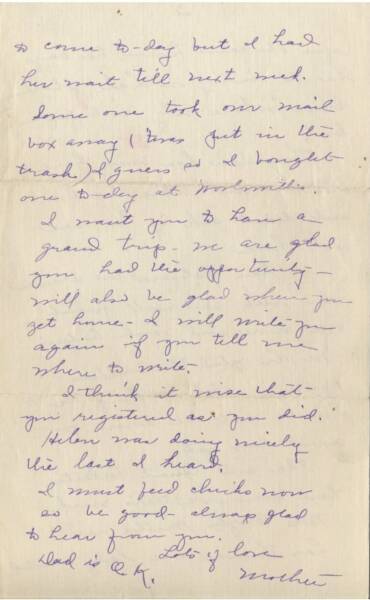 to come to-day but I had
her wait till next week.
Some one took our mail
box away ( 'twas put in the
trash) I guess so I bought
one to-day at
I want you to have a
grand trip - we are glad
you had the opportunity -
will also be glad when you
get home - I will write you
again if you tell me
where to write.
I think it wise that
you registered as you did.
Helen was doing nicely
the last I heard.
I must feed chicks now
so be good - always glad
to hear from you.
Lots of love
Dad is O.K.
Mother